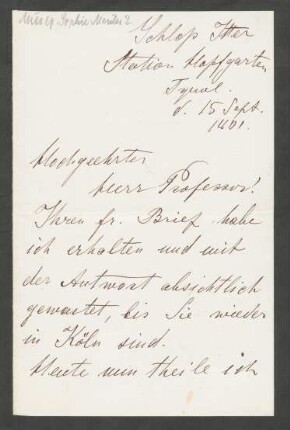 Schloß Itter
Station Hopfgarten
Tyrol
d. 15 Sept.
1901.
Hochgeehrter
Herr Professor!
Ihren fr. Brief habe
ich erhalten und mit
der Antwort absichtlich
gewartet, bis Sie wieder
in Köln sind.
Heute nun theile ich